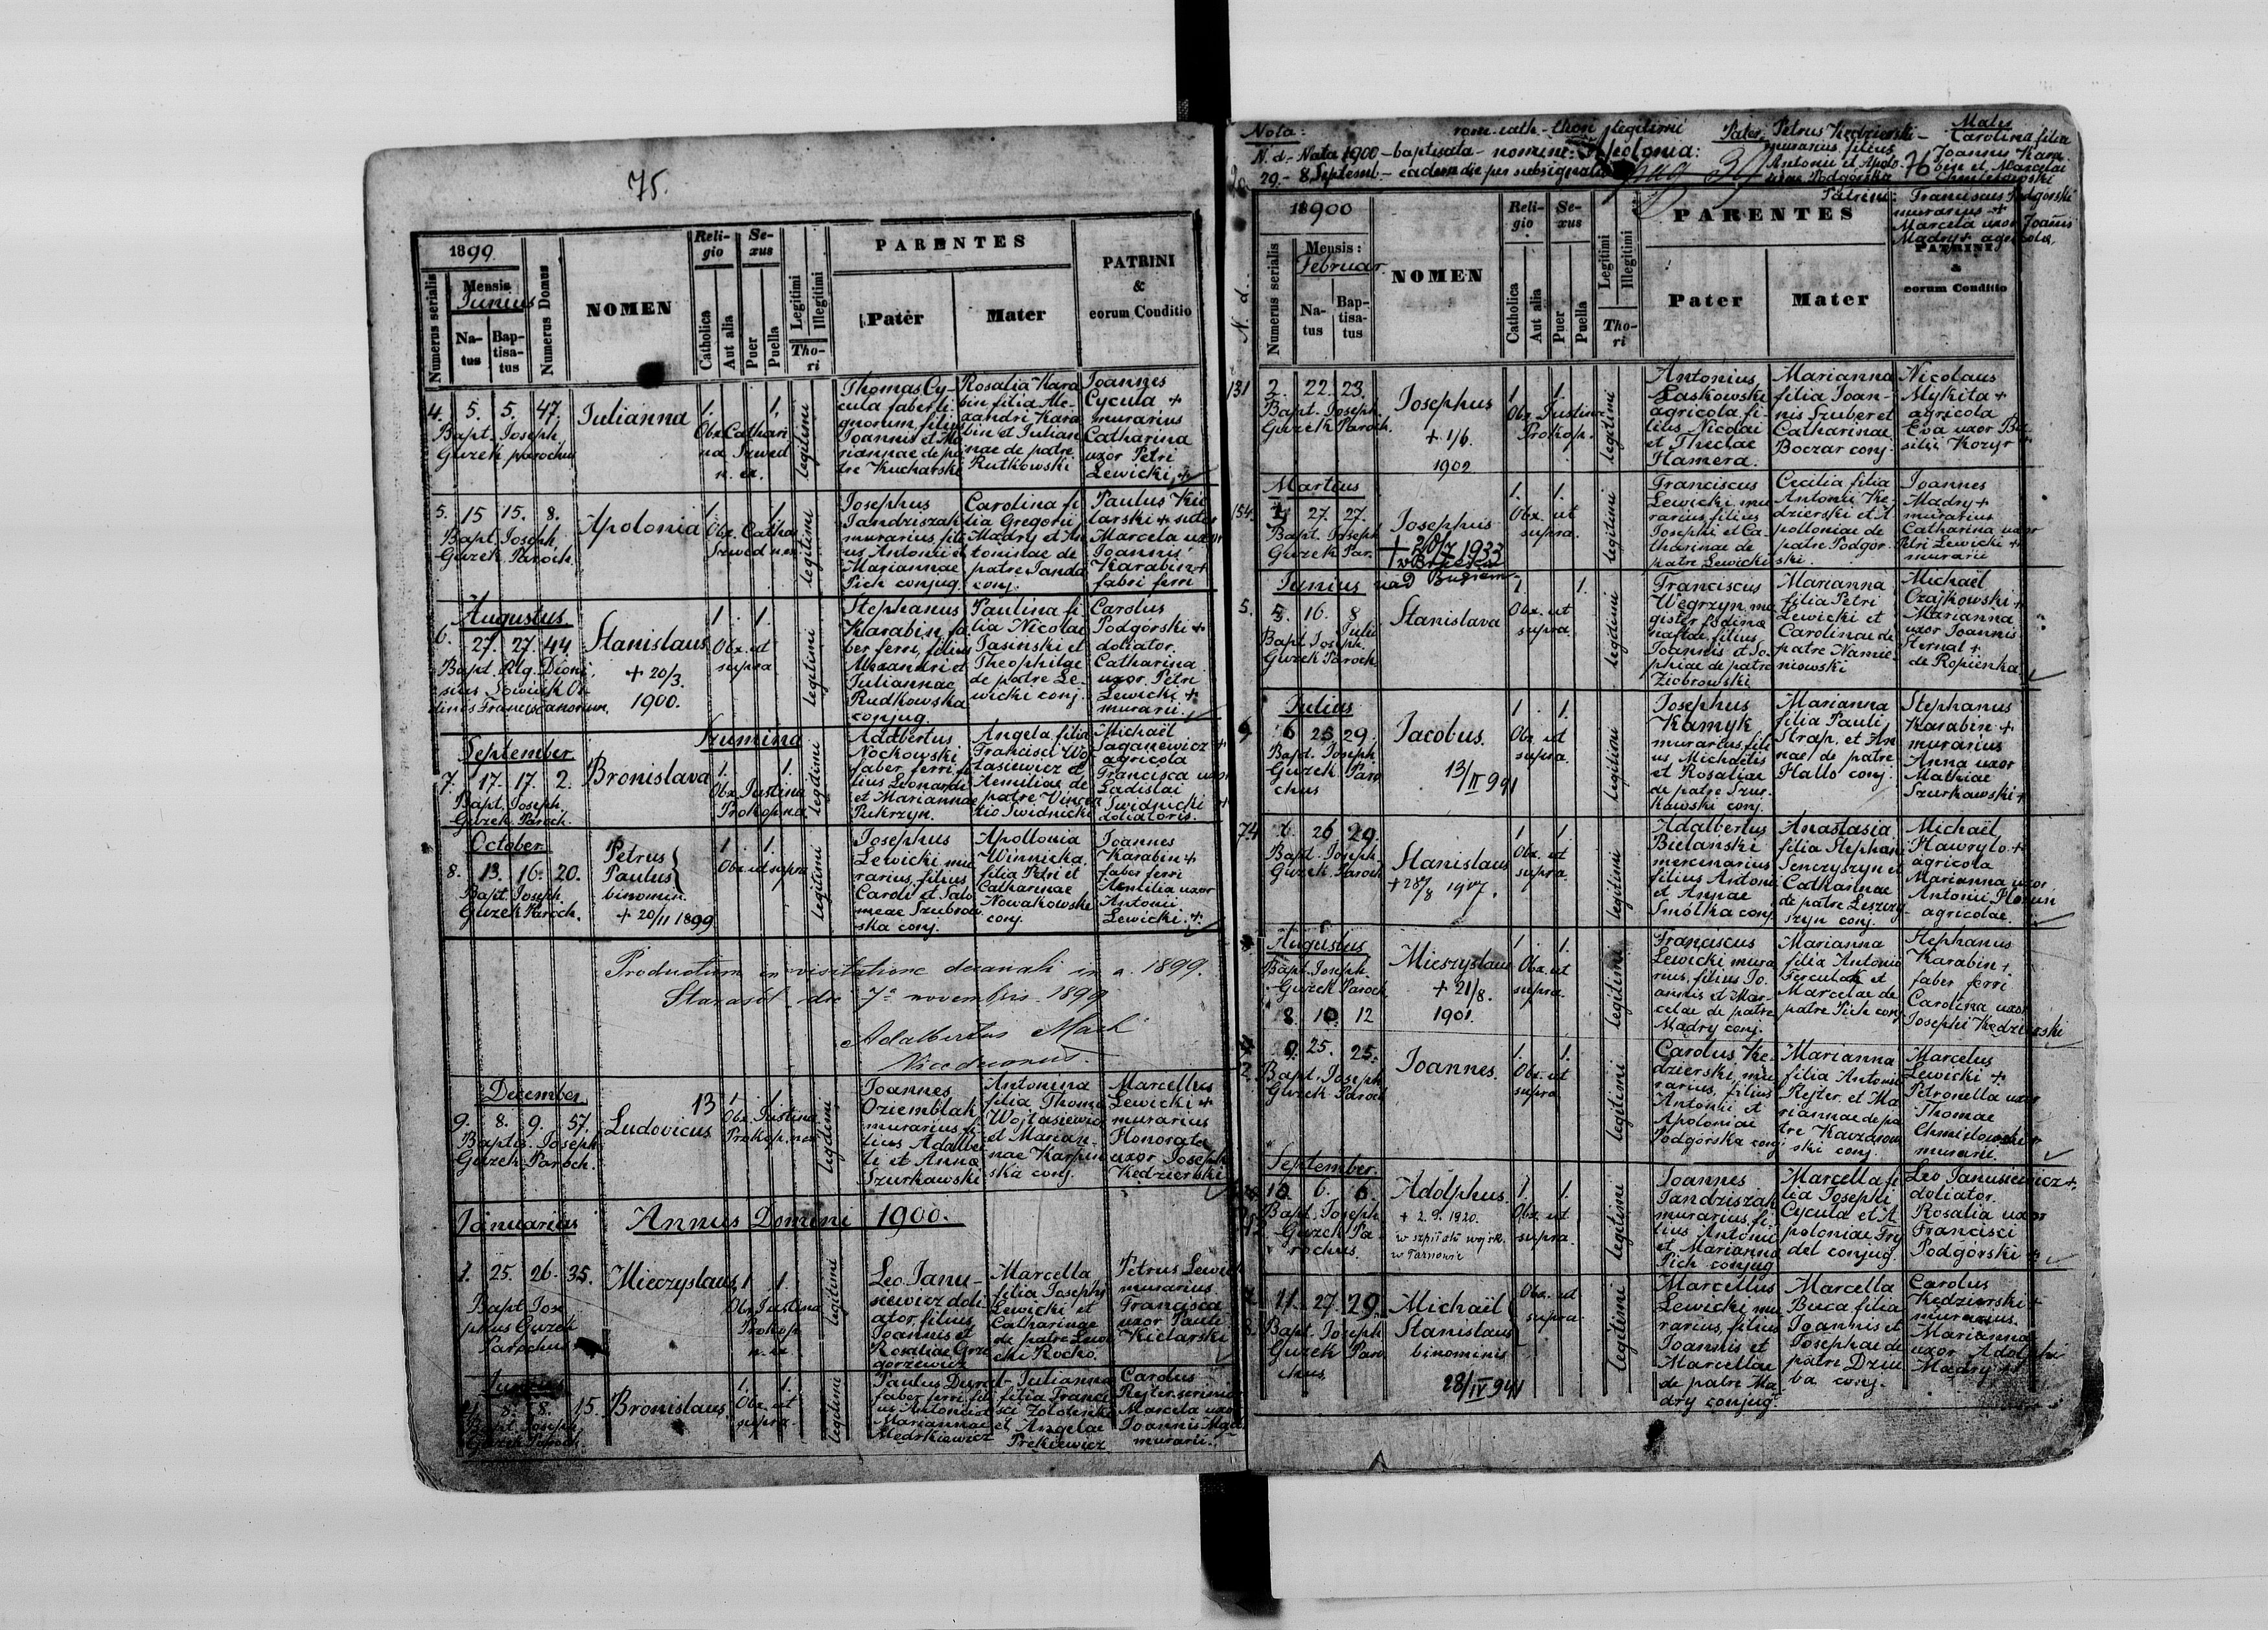 75.
1899.
Mensis
Iunius
Numerus serialis
Na-
tus
Bap-
tisa-
tus
Numerus Domus
NOMEN
Reli-
gio
Catholica
Aut alia
Se-
xus
Puer
Puella
Legitimi
Illegitimi
Tho-
ri
PARENTES
Pater
Mater
PATRINI
&
eorum Conditio
4. 5. 5. 47.
Bapt. Joseph
Guzek parochus
Iulianna
1. 1.
Obx. Cathari
na Szwed
n. ex.
legitimi
Thomas Cy-
cula faber li
gnorum, filius
Joannis et Ma
riannae de pa
tre Kucharski
Rosalia Kara
bin filia Ale-
xandri Kara
bin et Julian
nae de patre
Rutkowski
Joannes
Cycula +
murarius
Catharina
uxor Petri
Lewicki +
5. 15 15. 8.
Bapt. Joseph
Guzek Paroch.
Apolonia
1. 1.
Obx. Cathar
Szwed n. ex.
legitimi
Josephus
Jandziszak
murarius, fili
us Antonii et
Mariannae
Pich conjug.
Carolina fi
lia Gregorii
Madry et An
toninae de
patre Janda
conj.
Paulus Kie
larski + sutor
Marcela uxor
Joannis
Karabin +
fabri ferri
Augustus
6. 27. 27. 44
Bapt. Rlg. Dioni
sius
Ordinis Franciscanorum.
Stanislaus
+ 20/3.
1900.
1. 1.
Obx. ut
supra
legitimi
Stephanus
Karabin, fa
ber ferri, filius
Alexandri et
Juliannae
Rudkowska
conjug.
Paulina fi
lia Nicolai
Jasinski et
Theophilae
de patre Le-
wicki conj.
Carolus
Podgórski +
doliator.
Catharina
uxor Petri
Lewicki +
murarii
September
7. 17. 17. 2.
Bapt. Joseph.
Guzek Paroch.
Bronislava
Szumina
1. 1.
Obx. Justina
Prokop n. ex.
legitimi
Adalbertus
Nockowski
faber ferri, fi
lius Leonardi
et Mariannae
Pukrzyn.
Angela filia
Francisci Wo
tasiewicz et
Aemiliae de
patre Vincen
tio Swidnicki
Michaël
Jaganewicz +
agricola
Francisca uxor
Ladislai
Swidnicki +
doliatoris.
October
8. 13. 16. 20.
Bapt. Joseph
Guzek Paroch.
Petrus
Paulus
binomin.
+ 20/11 1899
1. 1.
Obx. ut supra
legitimi
Josephus
Lewicki mu
rarius, filius
Caroli et Salo
meae Szubrow
ska conj.
Apollonia
Winnicka
filia Petri et
Catharinae
Nowakowska
conj.
Joannes
Karabin +
faber ferri
Amilia uxor
Antonii
Lewicki. +
Productum in visitatione decanali in a. 1899.
Starasól die 7a novembris 1899
Adalbertus Mach
Vicedecanus.
December
9. 8. 9. 57.
Baptis. Joseph
Guzek Paroch.
Ludovicus
13
1. 1.
Obx. Justina
Prokop. n. ex.
legitimi
Joannes
Oziemblak
murarius, fi-
lius Adalber
ti et Annae
Szurkawski
Antonina
filia Thomae
Wojtasiewicz
et Marian-
nae Karpin
ska conj.
Marcellus
Lewicki +
murarius
Honorata
uxor Joseph
Kędzierski
Januarius Annus Domini 1900.
1. 25. 26. 35.
Bapt. Jose
phus Guzek
Parochus
Mieczyslaus
1. 1.
Obx. Justina
Prokop
n. ex
legitimi
Leo Janu-
siewicz doli
ator, filius
Joannis et
Rosaliae Grze
gorzewicz
Marcella
filia Josephi
Lewicki et
Catharinae
de patre Lewi
cki Rocho.
Petrus Lewicki
murarius
Francisca
uxor Pauli
Kielarski
8. 8. 15.
Bapt. Joseph
Guzek Paroch
Bronislaus
1. 1.
Obx. ut
supra.
legitimi
Paulus Durat
faber ferri fili
us Antonii et
Mariannae
Mędrkiewicz
Julianna
filia Franci
sci Zolotenki
et Angelae
Prekiewicz
Carolus
Rejter
Marcela uxor
Joannis Madry
murarii.
Nota: rom-cath - thori legitimi
N. d. - Nata 1900 - baptisata - nomine: Apolonia:
29. - 8. Septemb - eadem die per subsignatum
pag 37
Pater Petrus Kędzierski -
murarius, filius
Antonii et Apolo-
niae Podgórska
Mater
Carolina filia
Joannis Kara
bin et Marcelae
Chmielowski
76
Patrini: Franciscus Podgórski
murarius +
Marcela uxor Joannis
Madry + agricolae
1900
Mensis:
Februar.
N. d.
Numerus serialis
Na-
tus
Bap-
tisa-
tus
NOMEN
Reli-
gio
Catholica
Aut alia
Se-
xus
Puer
Puella
Legitimi
Illegitimi
Tho-
ri
PARENTES
Pater
Mater
PATRINI
&
eorum Conditio
131 2. 22. 23.
Bapt. Joseph.
Guzek Paroch.
Josephus
+ 1/6.
1902
1. 1.
Obx. Justina
Prokop.
legitimi
Antonius
Laskowski
agricola, fi-
lius Nicolai
et Theclae
Hamera.
Marianna
filia Joan-
nis Szuber et
Catharinae
Boczar conj.
Nicolaus
Mykita +
agricola
Eva uxor Ba
silii Kozyr +
Martius
154. 27. 27.
Bapt. Joseph
Guzek Par.
Josephus
+ 20/7 1933
w Brześciu
nad Bugiem
1. 1.
Obx. ut
supra.
legitimi
Franciscus
Lewicki mu
rarius, filius
Josephi et Ca
tharinae de
patre Lewicki
Cecilia filia
Antonii Kę-
dzierski et A
polloniae de
patre Podgór-
ski.
Joannes
Madry +
murarius
Catharina uxor
Petri Lewicki +
murarii
Junius
5. 5. 16. 8
Julii
Bapt. Joseph.
Guzek Paroch
Stanislava
1. 1.
Obx. ut
supra.
legitimi
Franciscus
Węgrzyn ma
gister fodinae
naftae, filius
Joannis et So-
phiae de patre
Ziobrowski
Marianna
filia Petri
Lewicki et
Carolinae de
patre Namie-
niowski
Michaël
Czajkowski +
Marianna
uxor Joannis
Sternal +
de Ropienka
Julius
6 25 29.
Bapt. Joseph
Guzek Paro
chus
Jacobus.
13/II 941
1. 1.
Obx. ut
supra.
legitimi
Josephus
Kamyk
murarius, fili
us Michaëlis
et Rosaliae
de patre Szur-
kawski conj.
Marianna
filia Pauli
Strap. et An
nae de patre
Hallo conj.
Stephanus
Karabin +
murarius
Anna uxor
Mathiae
Szurkawski +
74 26 29.
Bapt. Joseph.
Guzek Paroch
Stanislaus
+ 28/8 1907.
1. 1.
Obx. ut
supra.
legitimi
Adalbertus
Bielanski
mercenarius
filius Antonii
et Annae
Smolka conj.
Anastasia
filia Stephani
Senczyszyn et
Catharinae
de patre Leszczy
szyn conj.
Michaël
Hawrylo +
agricola
Marianna uxor
Antonii Florun
agricolae.
Augustus
Bapt. Joseph.
Guzek Paroch
8 10 12
Mieszyslaus
+ 21/8.
1901.
1. 1.
Obx. ut
supra.
legitimi
Franciscus
Lewicki mura
rius, filius Jo.
annis et Mar-
celae de patre
Mądry conj.
Marianna
filia Antonii
Ferculak et
Marcelae de
patre Pich conj
Stephanus
Karabin +
faber ferri
Carolina uxor
Josephi Kędzierski
9. 25. 25.
Bapt. Joseph
Guzek Paroch
Joannes.
1. 1.
Obx. ut
supra
legitimi
Carolus Kę-
dzierski, mu
rarius, filius
Antonii et
Apoloniae
Podgórska conj
Marianna
filia Antonii
Rejter. et Ma
riannae de pa
tre Kaczarow
ski conj.
Marcelus
Lewicki +
Petronella uxor
Thomae
Chmielowski +
murarii.
September.
10. 6. 6.
Bapt. Joseph
Guzek Pa-
rochus.
Adolphus.
+ 2. 9. 1920.
w szpitalu wojsk.
w Tarnowie
1. 1.
Obx. ut
supra.
legitimi
Joannes
Jandziszak
murarius, fi-
lius Antonii
et Marianna
Pich conjug
Marcella fi
lia Josephi
Cycula et A
poloniae Fry
del conjug.
Leo Janusiewicz +
doliator.
Rosalia uxor
Francisci
Podgórski +
11. 27. 29.
Bapt. Joseph
Guzek Paro
chus
Michaël
Stanislaus
binominis
28/IV 941
Obx. ut
supra.
legitimi
Marcellus
Lewicki mu
rarius, filius
Joannis et
Marcellae
de patre Ma
dry conjug.
Marcella
Buca filia
Joannis et
Josephae de
patre Dziu
ba conj.
Carolus
Kędzierski +
murarius.
Marianna
uxor Adolphi
Madry +